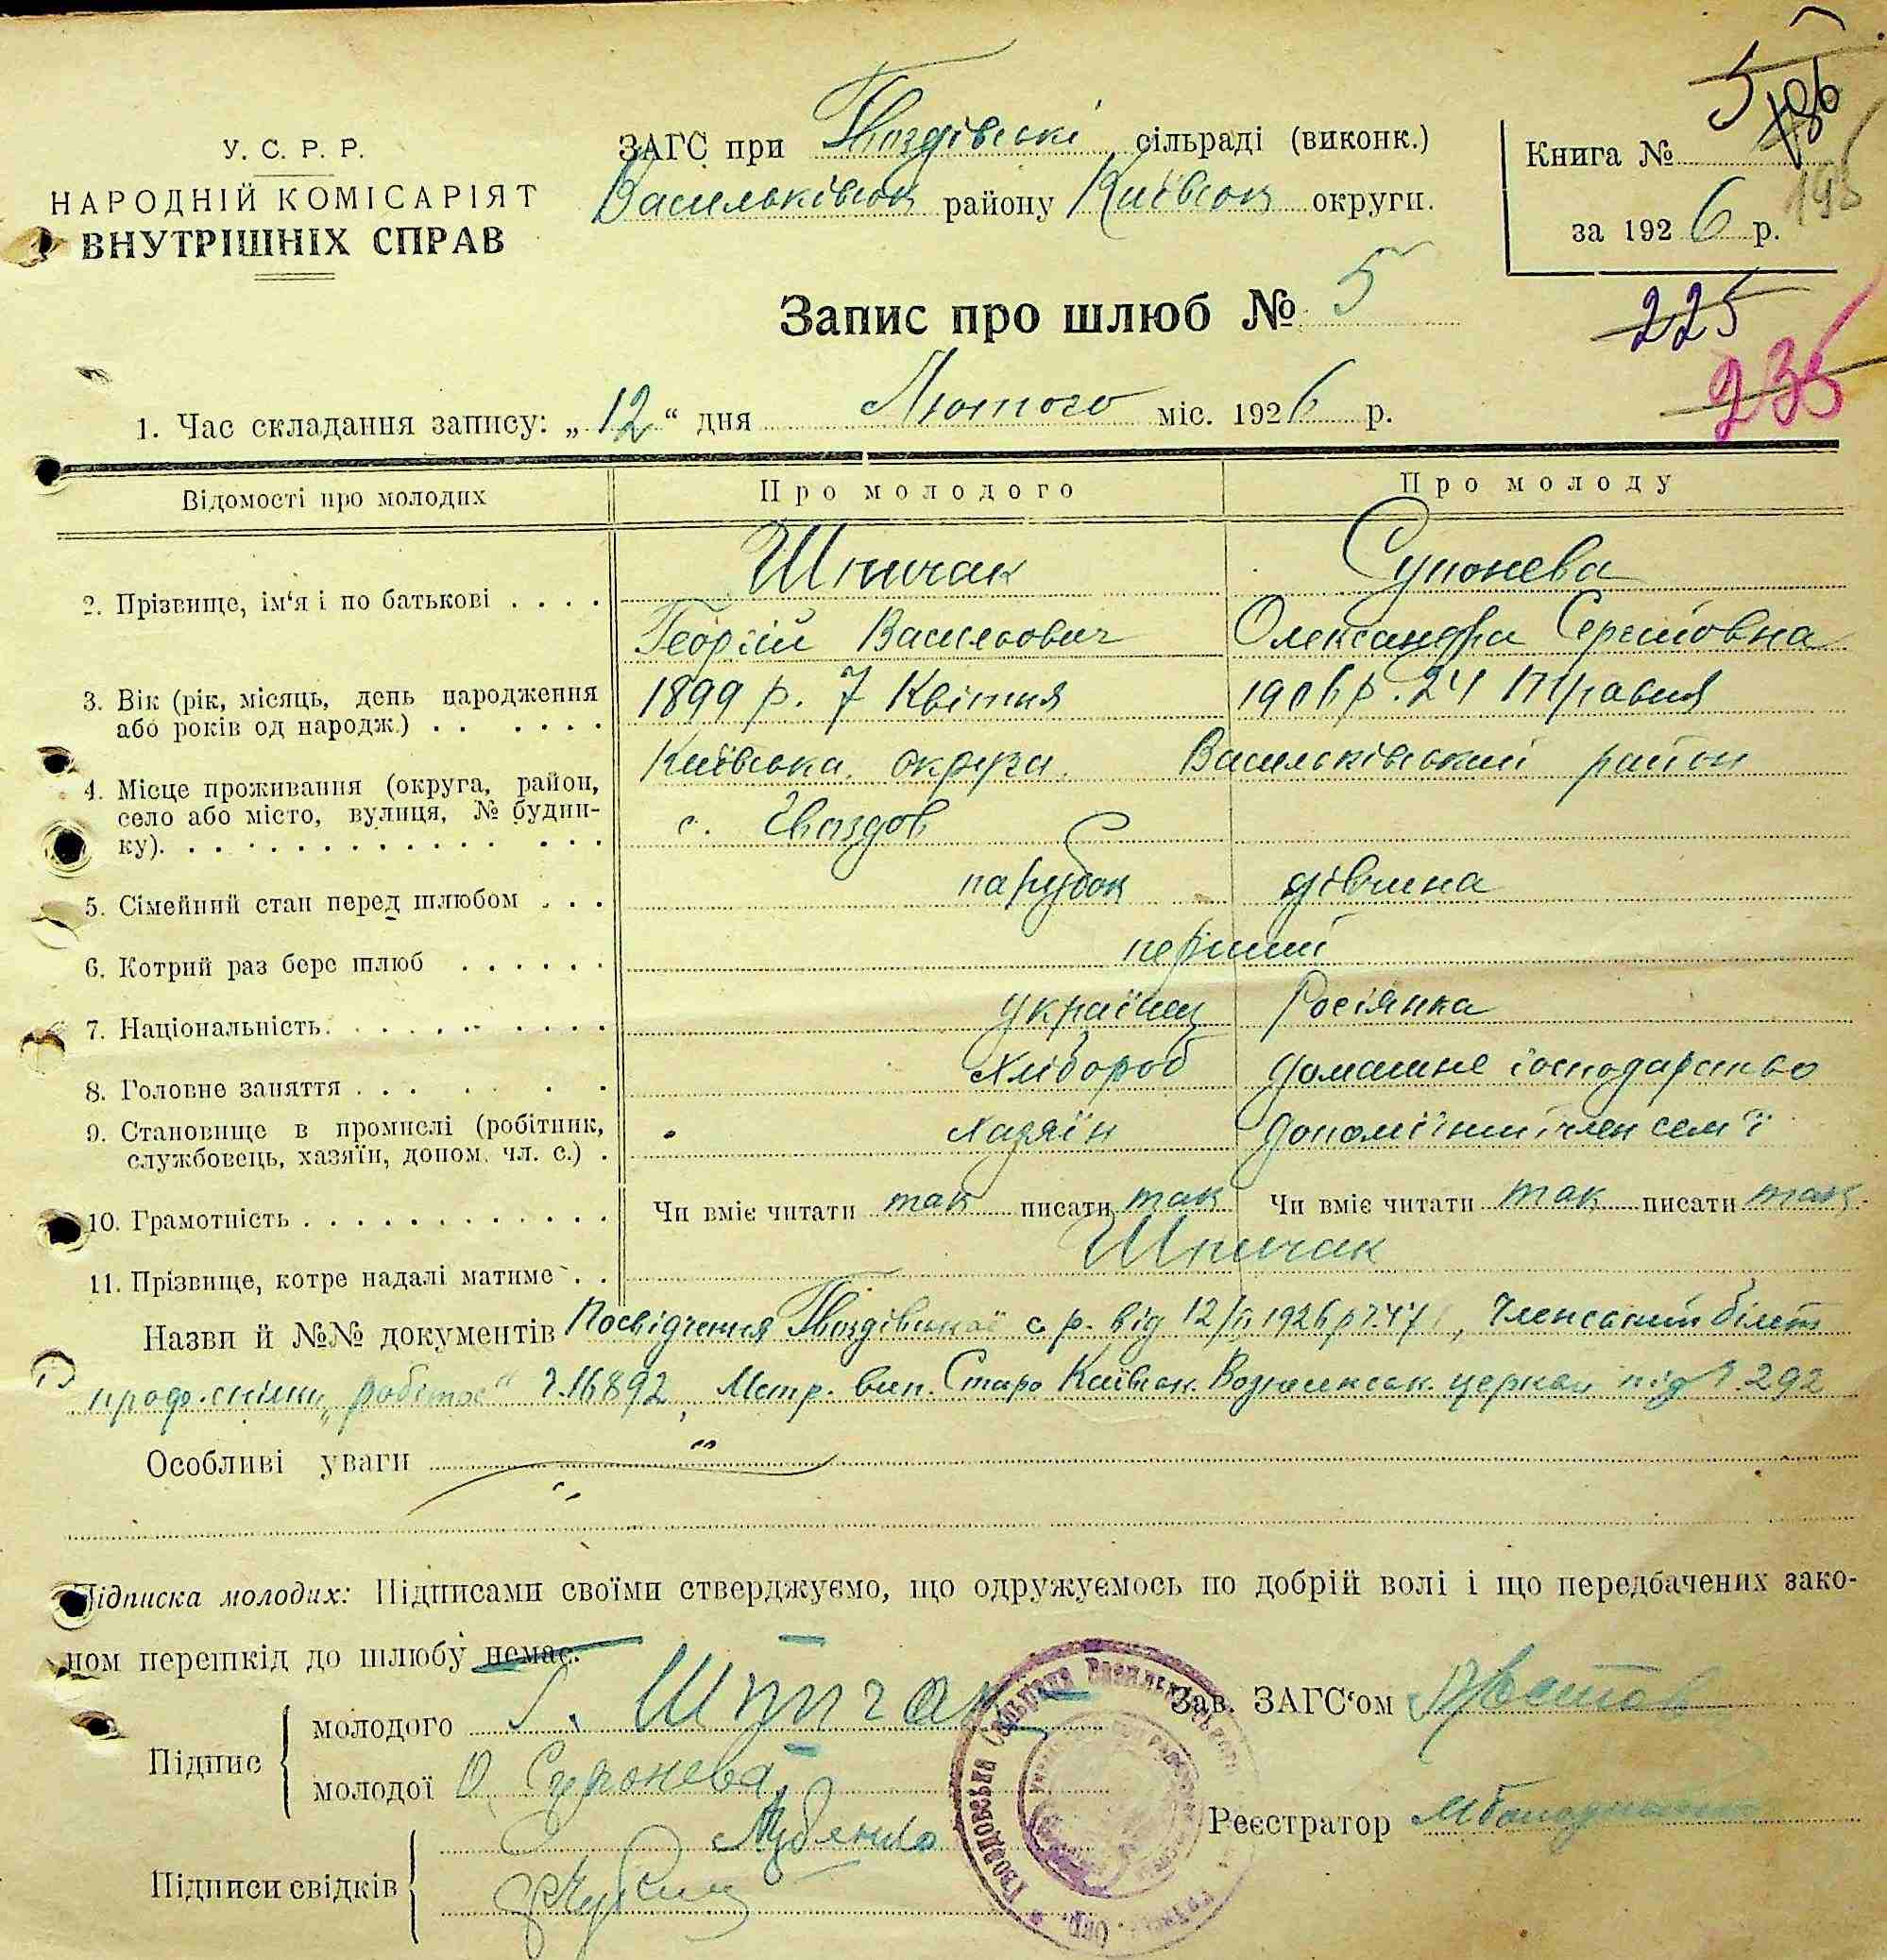 У. С. Р. Р.
НАРОДНІЙ КОМІСАРІЯТ
ВНУТРІШНІХ СПРАВ
ЗАГС при Гвоздівські сільраді (виконк.)
Васильківськ району Київськ округи.
Книга № 5 186
195
за 1926 р.
225
235
Запис про шлюб № 5
1. Час складання запису: „12“ дня Лютого міс. 1926 р.
Відомості про молодих Про молодого Про молоду
2. Прізвище, ім‘я і по батькові . . . . Шпичак Супонева
Георгій Васильович Олександра Сергіївна
3. Вік (рік, місяць, день народження або років од народж.) . . . . . . 1899 р. 7 Квітня 1906 р. 24 Травня
4. Місце проживання (округа, район, село або місто, вулиця, № будинку). Київська округа Васильківський район
с. Гвоздов
5. Сімейний стан перед шлюбом . . . парубок дівчина
6. Котрий раз бере шлюб . . . . . . перший
7. Національність. українец Росіянка
8. Головне заняття . . . Хлібороб домашнє господарство
9. Становище в промислі (робітник, службовець, хазяїн, допом. чл. с.) . хазяїн допоміжний член сем'ї
10. Грамотність Чи вміє читати так писати так Чи вміє читати так писати так.
11. Прізвище, котре надалі матиме . . Шпичак
Назви й №№ документів Посвідчення Гвоздівської с. р. від 12/II 1926 р. , Членський білет
проф. спілки „робітос“ 16892, Метр. вип. Старо Київськ. Вознесенськ. церкви під 292
Особливі уваги
Підписка молодих: Підписами своїми стверджуємо, що одружуємось по добрій волі і що передбачених зако-
ном перешкід до шлюбу немає.
Підпис
молодого Г. Шпичак
молодої О. Супонева
Зав. ЗАГС‘ом
Реєстратор
Підписи свідків